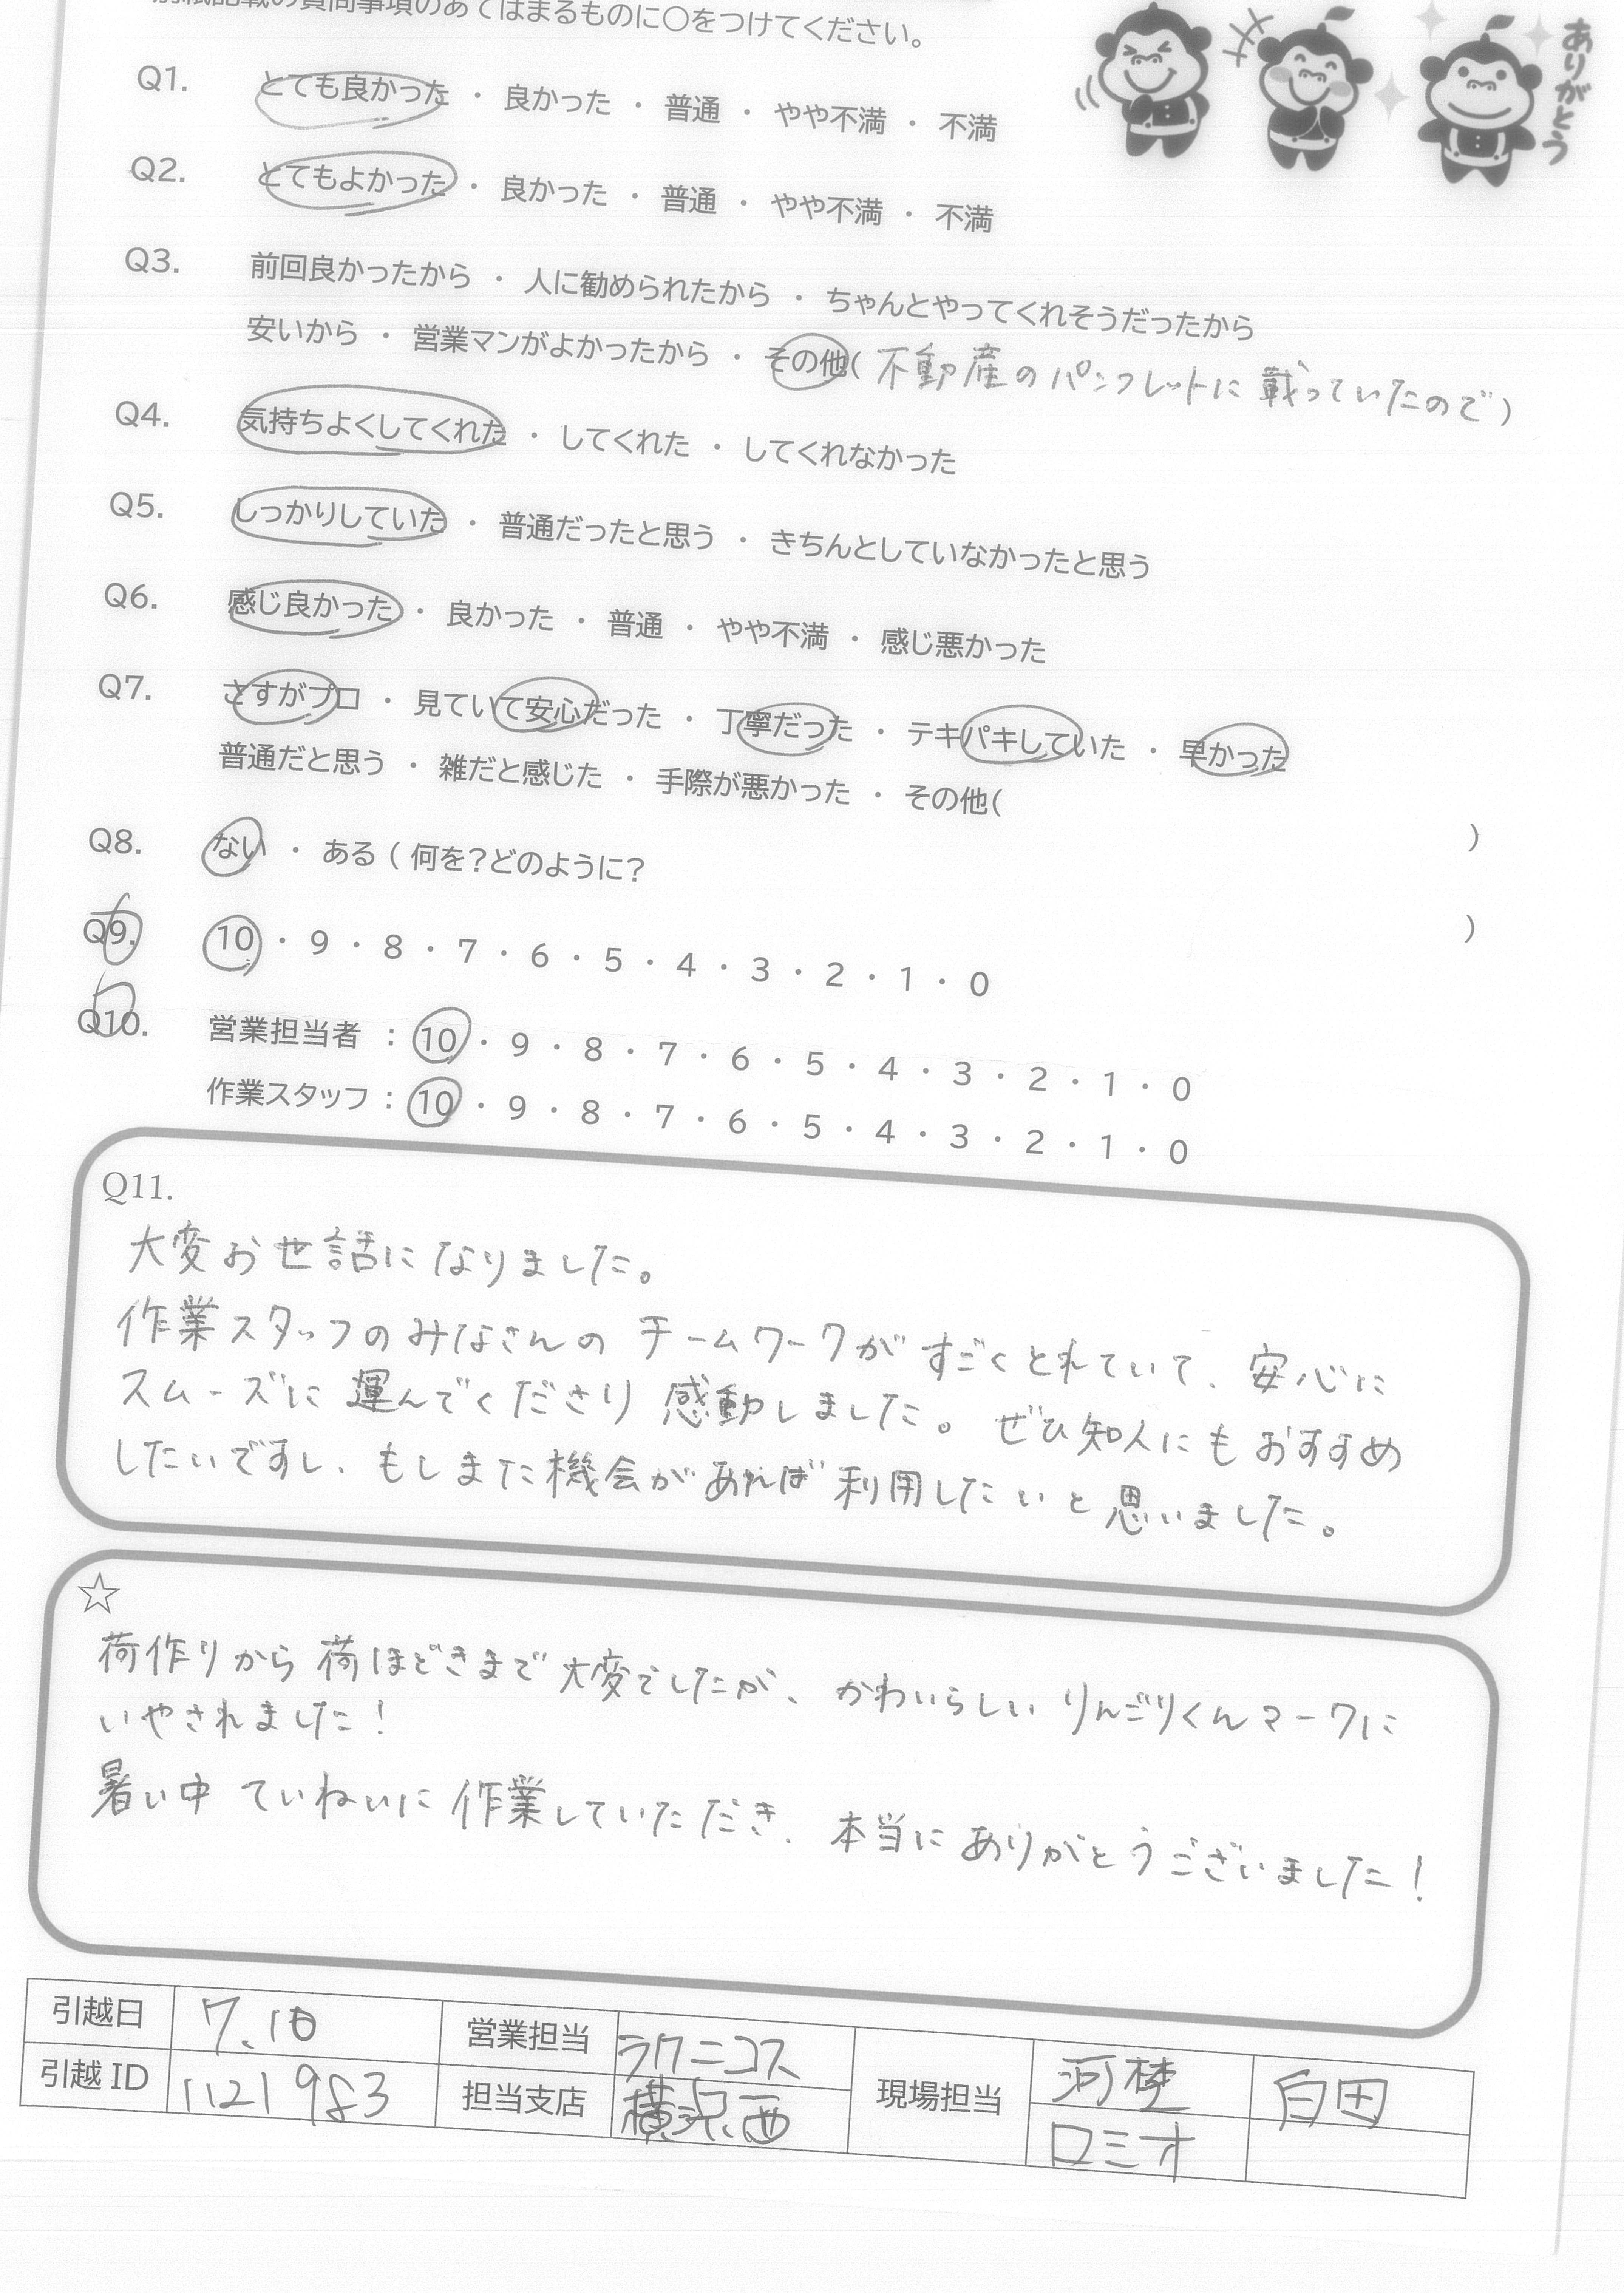 別紙記載の質問事項のあてはまるものに〇をつけてください。
ありがとう
Q1. とても良かった ・ 良かった ・ 普通 ・ やや不満 ・ 不満
Q2. とてもよかった ・ 良かった ・ 普通 ・ やや不満 ・ 不満
Q3. 前回良かったから ・ 人に勧められたから ・ ちゃんとやってくれそうだったから
安いから ・ 営業マンがよかったから ・ その他( 不動産のパンフレットに載っていたので)
Q4. 気持ちよくしてくれた ・ してくれた ・ してくれなかった
Q5. しっかりしていた ・ 普通だったと思う ・ きちんとしていなかったと思う
Q6. 感じ良かった ・ 良かった ・ 普通 ・ やや不満 ・ 感じ悪かった
Q7. さすがプロ ・ 見ていて安心だった ・ 丁寧だった ・ テキパキしていた ・ 早かった
普通だと思う ・ 雑だと感じた ・ 手際が悪かった ・ その他( )
Q8. ない ・ ある ( 何を?どのように? )
Q9. 10 ・ 9 ・ 8 ・ 7 ・ 6 ・ 5 ・ 4 ・ 3 ・ 2 ・ 1 ・ 0
Q10. 営業担当者 : 10 ・ 9 ・ 8 ・ 7 ・ 6 ・ 5 ・ 4 ・ 3 ・ 2 ・ 1 ・ 0
作業スタッフ : 10 ・ 9 ・ 8 ・ 7 ・ 6 ・ 5 ・ 4 ・ 3 ・ 2 ・ 1 ・ 0
Q11.
大変お世話になりました。
作業スタッフのみなさんの チームワークが すごくとれていて、安心に
スムーズに 運んでくださり 感動しました。ぜひ知人にもおすすめ
したいですし、もしまた機会があれば利用したいと思いました。
☆
荷作りから荷ほどきまで大変でしたが、かわいらしい りんごりくんマークに
いやされました!
暑い中 ていねいに作業していただき、本当にありがとうございました!
引越日 7.10 営業担当 ラクニコス 現場担当 白田
引越 ID 1121983 担当支店 横浜西 ロミオ